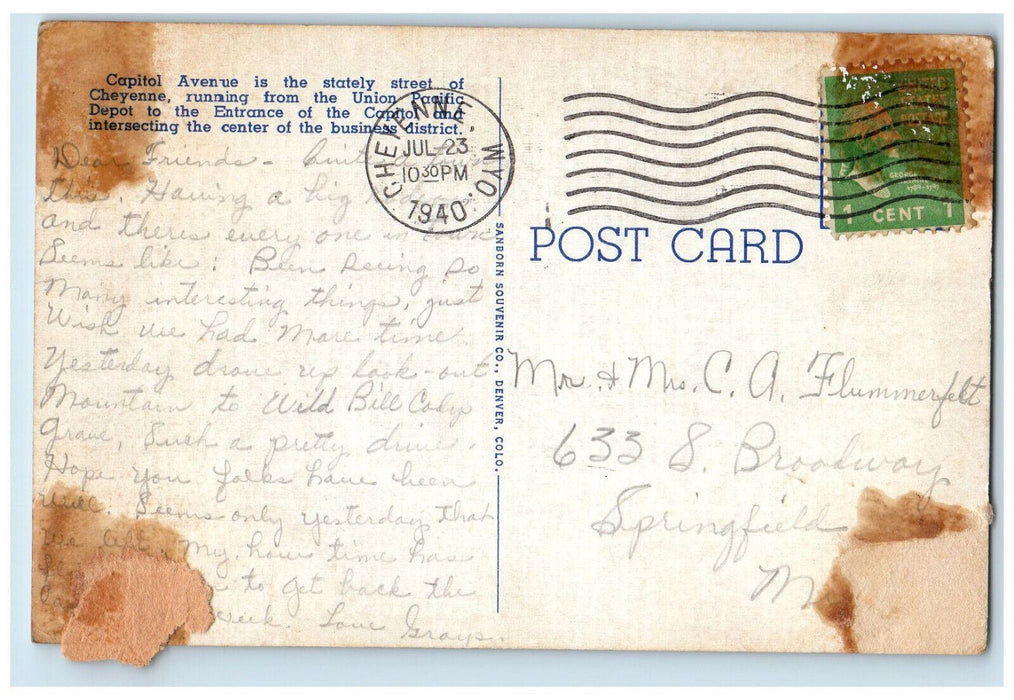 Capitol Avenue is the stately street of
Cheyenne, running from the Union Pacific
Depot to the Entrance of the Capitol and
intersecting the center of the business district.
CHEYENNE, WYO.
JUL 23
10 30 PM
1940
1 CENT 1
POST CARD
SANBORN SOUVENIR CO., DENVER, COLO.
Dear Friends -
this. Having a big
and theres every one in town
Seems like. Been seeing so
Many interesting things, just
Wish we had More time.
Yesterday drove up look-out
Mountain to Wild Bill Cody
grave. Such a pretty drive.
Hope you folks have been
well. Seems only yesterday that
we left. My, how time has
to get back the
week. Love Grays.
Mr. & Mrs. C. A. Flummerfelt
633 S. Broadway
Springfield